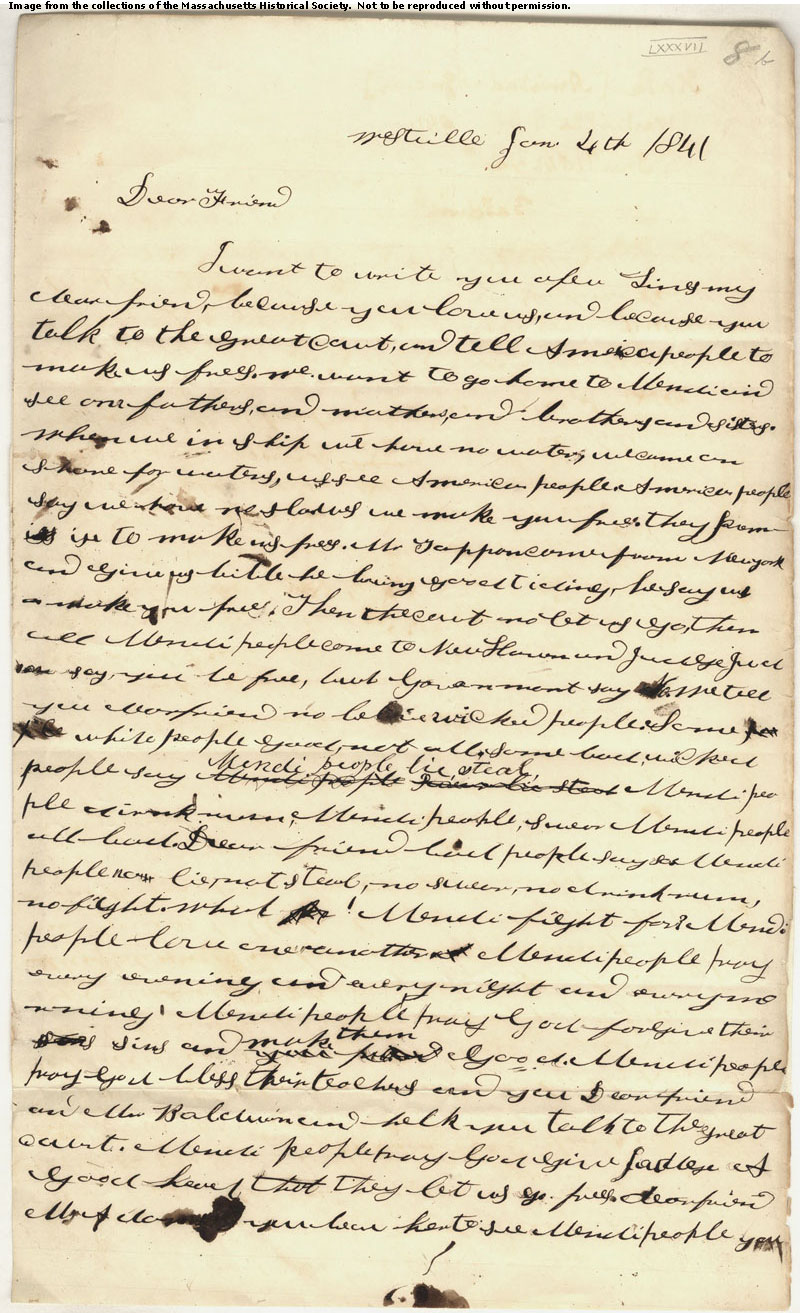 Image from the collections of the Massachusetts Historical Society. Not to be reproduced without permission.
LXXXVII
8
Westville Jan 4th 1841
Dear Friend
I want to write you a few Lines my
dear friend, because you love us, and because you
talk to the great Court, and tell America people to
make us free. we want to go home to Mendi and
see our fathers, and mothers, and brothers and sisters.
when we in ship we have no water, we come on
shore for waters, we see American people. American people
say we have no slaves we make you free. they
to make us free. Mr Tappon come from New york
and give us bible he bring good tidings, he say
make you free. Then the cout no let us go, then
all Mendi people come to New Haven and Judge Jud
say, you be free, but Goverment say No we tell
you dear friend no believe wicked people. Some
white people good, not all, some bad, wicked
Mendi people lie, steal,
people say Mendi people steal Mendi peo
ple drink rum, Mendi people, swear Mendi people
all bad. Dear friend bad people say Mendi
people lie, not steal, no swear, no drink rum,
no fight. what ! Mendi fight for? Mendi
people love one another Mendi people pray
every evening and every night and every mo
rning! Mendi people pray God forgive their
mak them
sins and good. Mendi people
pray God bless their teachers and you Dear friend
and Mr Baldwin and help you talk to the great
court. Mendi people pray God give Judge A
good heart that they let us go free. dear friend
Mr Adams you been here to see Mendi people you